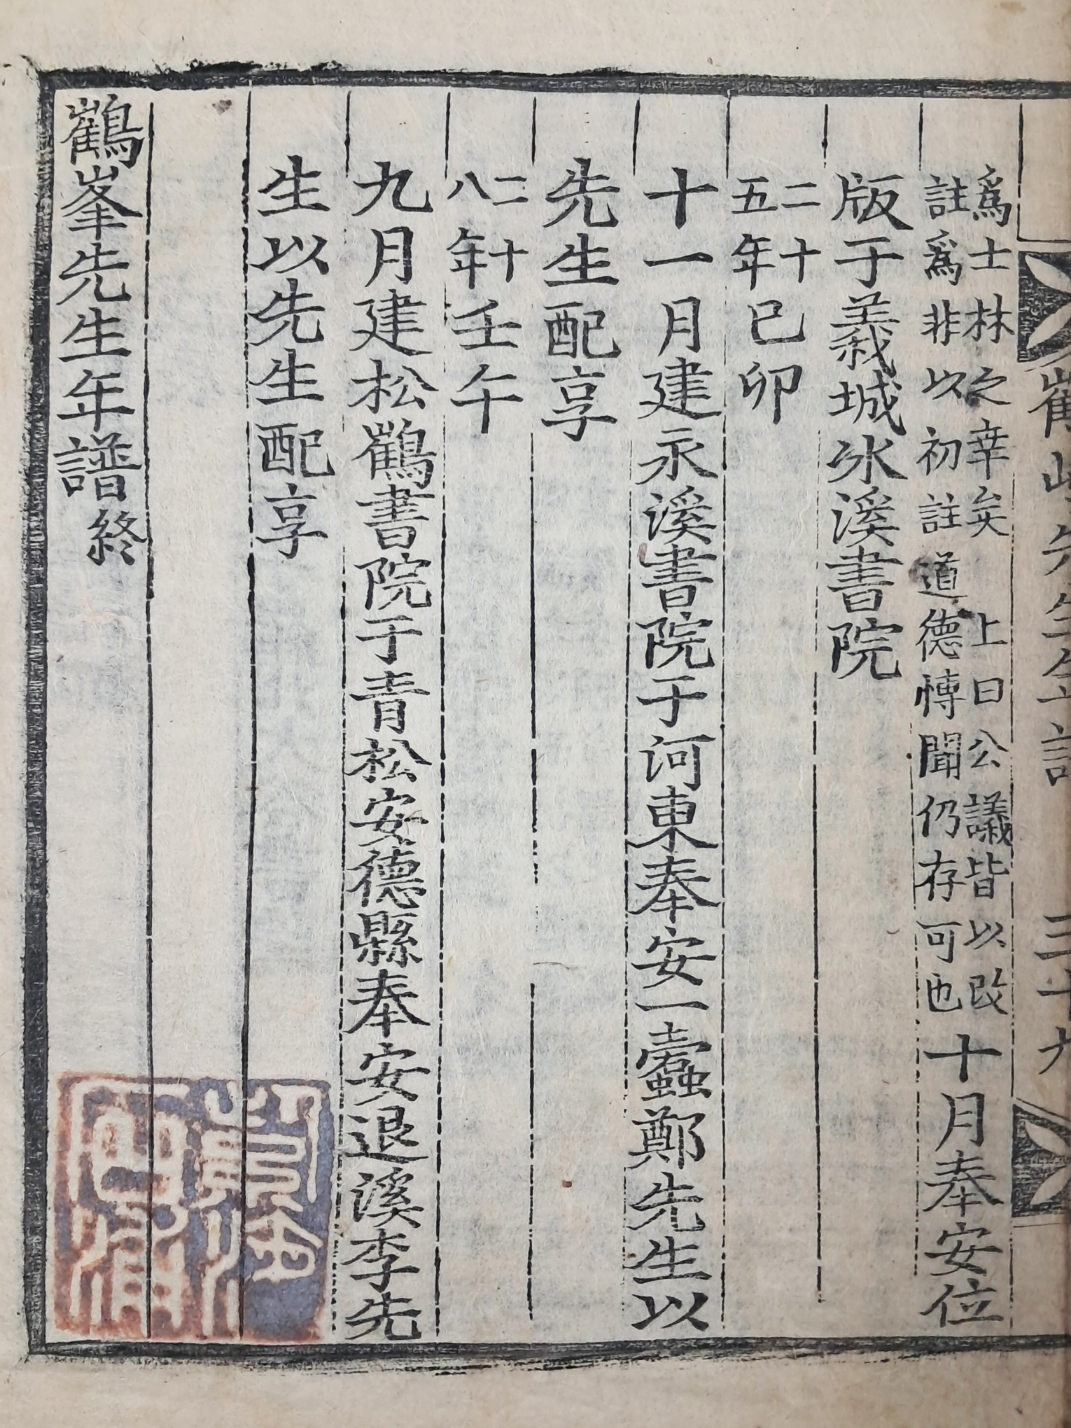 爲士林之幸矣 上曰公議皆以改
註爲非以初註道德博聞仍存可也 十月奉安位
版于義城氷溪書院
二十五年己卯
十一月建永溪書院于河東奉安一蠹鄭先生以
先生配享
二十八年壬午
九月建松鶴書院于青松安德縣奉安退溪李先
生以先生配享
鶴峯先生年譜終